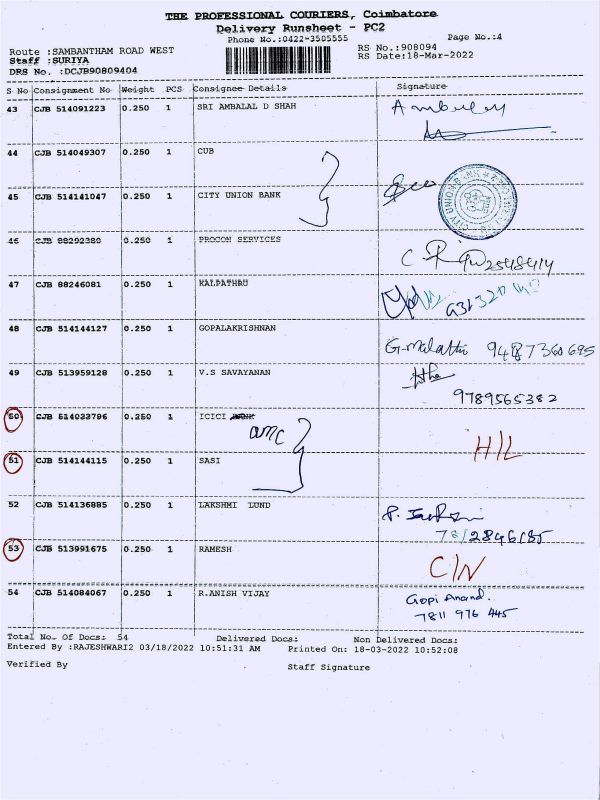 THE PROFESSIONAL COURIERS, Coimbatore
Delivery Runsheet - PC2
Phone No.:0422-3505555
Page No.:4
Route :SAMBANTHAM ROAD WEST
RS No.:908094
Staff :SURIYA
RS Date:18-Mar-2022
DRS No. :DCJB90809404
S No Consignment No Weight PCS Consignee Details Signature
43 CJB 514091223 0.250 1 SRI AMBALAL D SHAH
44 CJB 514049307 0.250 1 CUB
45 CJB 514141047 0.250 1 CITY UNION BANK
46 CJB 88292380 0.250 1 PROCON SERVICES
47 CJB 88246081 0.250 1 KALPATHRU
48 CJB 514144127 0.250 1 GOPALAKRISHNAN
G. Malathi 9487360695
49 CJB 513959128 0.250 1 V.S SAVAYANAN
9789565382
50 CJB 514023796 0.250 1 ICICI BANK
amc
H/L
51 CJB 514144115 0.250 1 SASI
52 CJB 514136885 0.250 1 LAKSHMI LUND
53 CJB 513991675 0.250 1 RAMESH
C/N
54 CJB 514084067 0.250 1 R.ANISH VIJAY
Gopi Anand.
7811 976 445
Total No. Of Docs: 54 Delivered Docs: Non Delivered Docs:
Entered By :RAJESHWARI2 03/18/2022 10:51:31 AM Printed On: 18-03-2022 10:52:08
Verified By Staff Signature